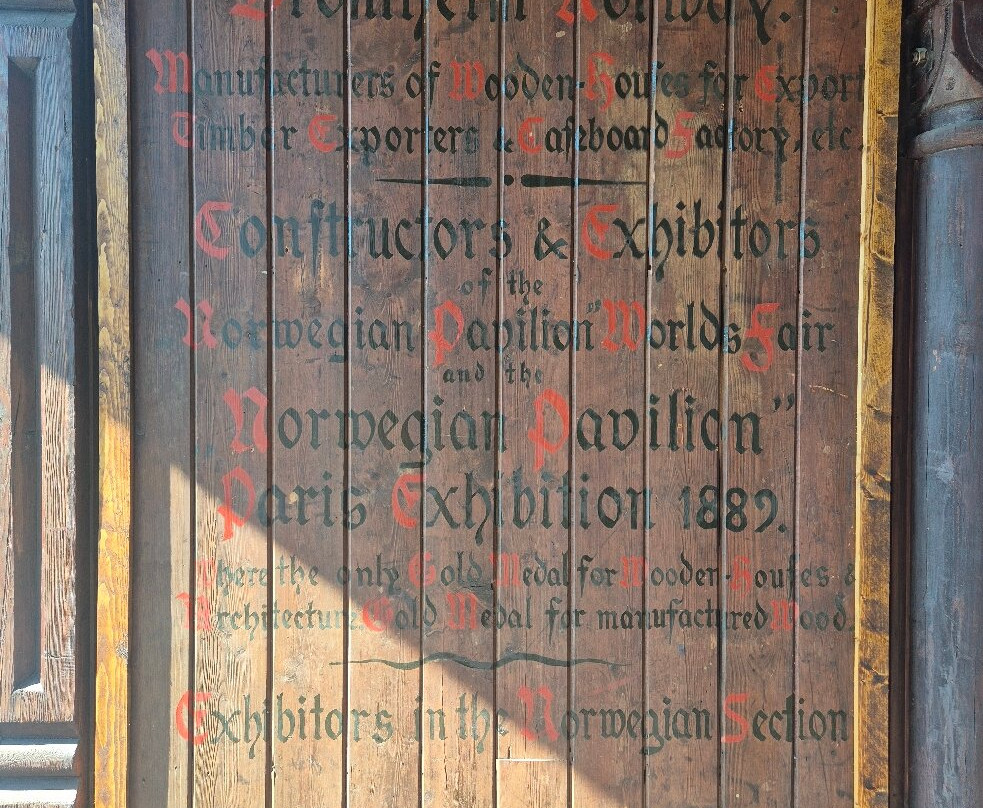 Dronthjem Norway.
Manufacturers of Wooden-Houses for Export
Timber Exporters & Caseboard Factory, etc.
Constructors & Exhibitors
of the
Norwegian Pavilion" Worlds Fair
and the
Norwegian Pavilion"
Paris Exhibition 1889.
Where the only Gold Medal for Wooden-Houses &
Architecture Gold Medal for manufactured Wood.
Exhibitors in the Norwegian Section